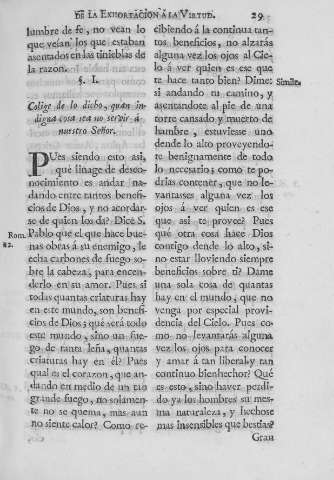 DE LA EXHORTACION Á LA VIRTUD. 29
lumbre de fe, no vean lo
que veían los que estaban
asentados en las tinieblas de
la razon.
§. I.
Colige de lo dicho, quan in-
digna cosa sea no servir á
nuestro Señor.
PUes siendo esto asi,
qué linage de desco-
nocimiento es andar na-
dando entre tantos benefi-
cios de Dios, y no acordar-
se de quien los dá? Dice S.
Rom. 12.
Pablo que el que hace bue-
nas obras á su enemigo, le
echa carbones de fuego so-
bre la cabeza, para encen-
derlo en su amor. Pues si
todas quantas criaturas hay
en este mundo, son benefi-
cios de Dios; qué será todo
este mundo, sino un fue-
go de tanta leña, quantas
criaturas hay en él? Pues
qual es el corazon, que an-
dando en medio de un tan
grande fuego, no solamen-
te no se quema, mas aun
no siente calor? Como re-
cibiendo á la continua tan-
tos beneficios, no alzarás
alguna vez los ojos al Cie-
lo á ver quien es ese que
te hace tanto bien? Dime:
Simile.
si andando tu camino, y
asentandote al pie de una
torre cansado y muerto de
hambre, estuviese uno
dende lo alto proveyendo-
te benignamente de todo
lo necesario; como te po-
drias contener, que no le-
vantases alguna vez los
ojos á ver quien es ese
que asi te provee? Pues
qué otra cosa hace Dios
contigo dende lo alto, si-
no estar lloviendo siempre
beneficios sobre ti? Dame
una sola cosa de quantas
hay en el mundo, que no
venga por especial provi-
dencia del Cielo. Pues co-
mo no levantarás alguna
vez los ojos para conocer
y amar á tan liberal y tan
continuo bienhechor? Qué
es esto, sino haver perdi-
do ya los hombres su mes-
ma naturaleza, y hechose
mas insensibles que bestias?
Gran